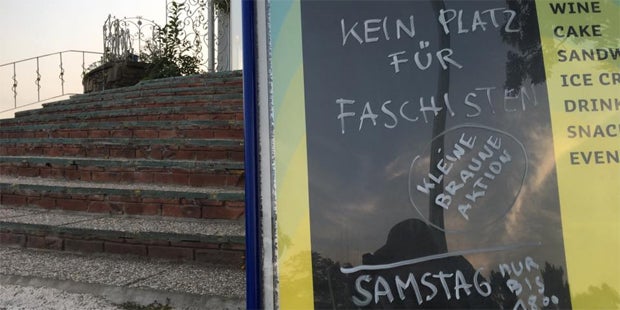 KEIN PLATZ
FÜR
FASCHISTEN
KLEINE
BRAUNE
AKTION
SAMSTAG NUR
BIS
WINE
CAKE
SANDW
ICE CR
DRINK
SNAC
EVEN